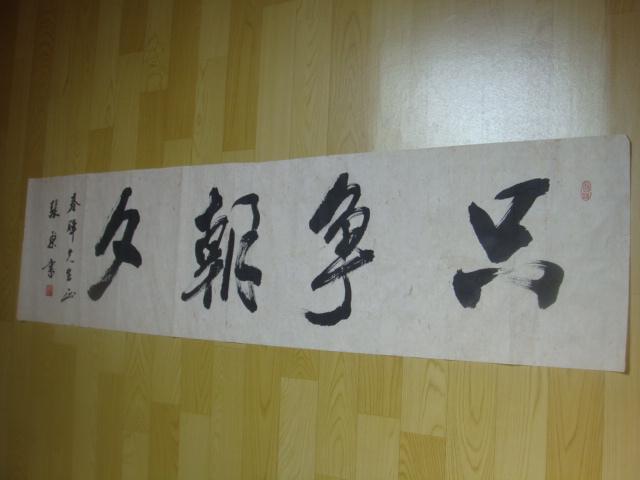 只争朝夕
春晖先生正
张泉书